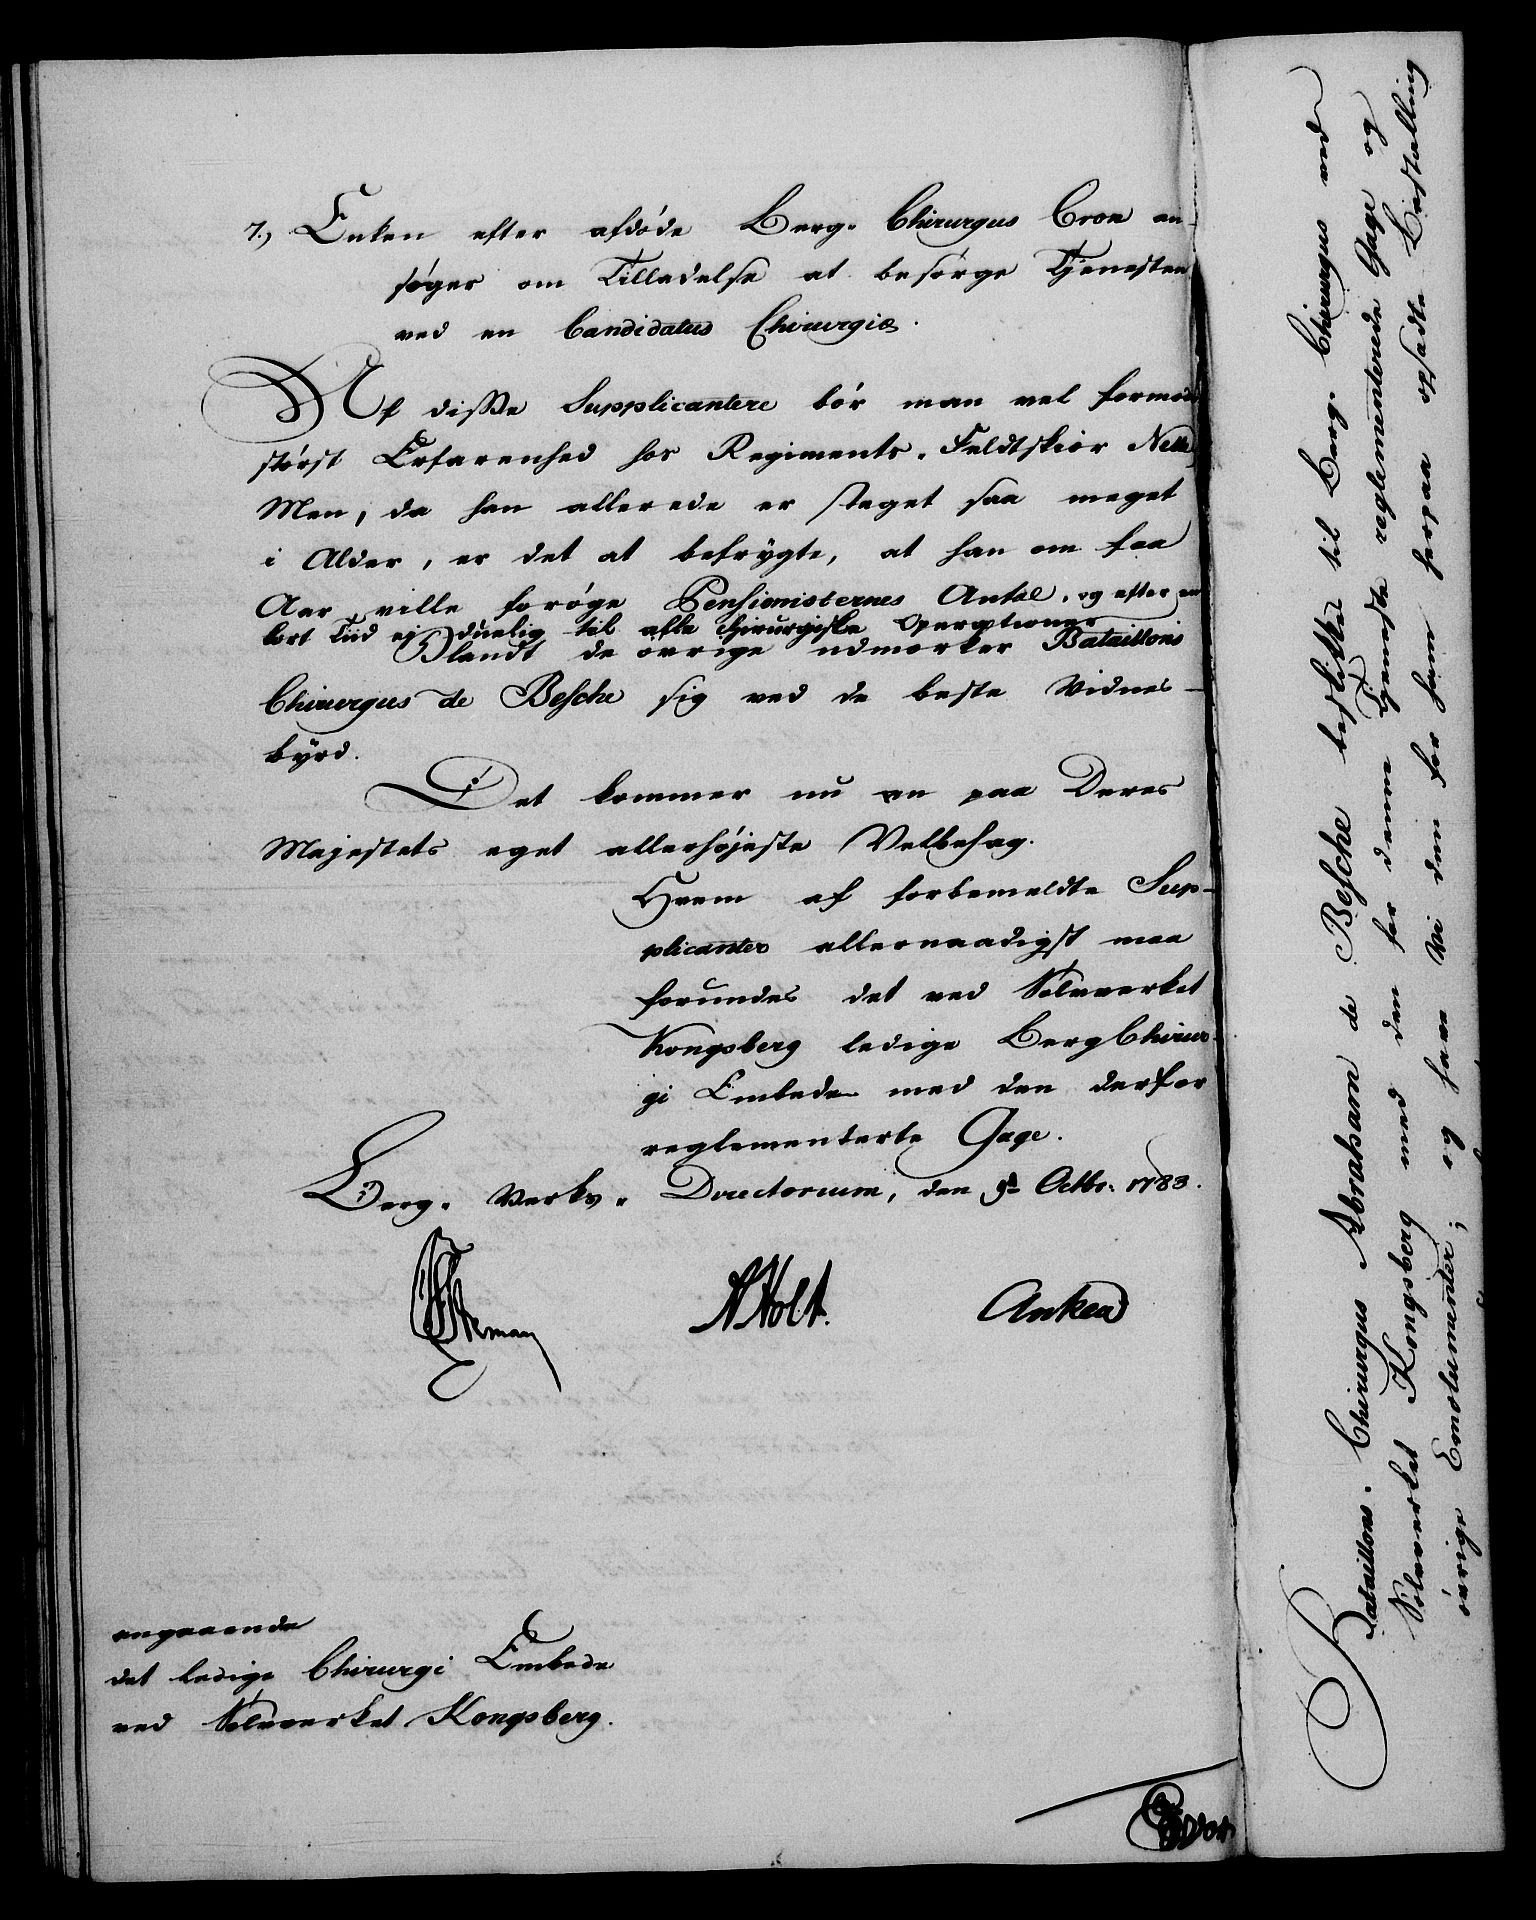 7.) Enken efter afdøde Berg-Chirurgus Cron an-
søger om Tilladelse at besørge Tjenesten
ved en Candidatus Chirurgiæ.
Af disse Supplicantere bør man vel formode
størst Erfarenhed hos Regiments-Feldtskiær
Men, da han allerede er steget saa meget
i Alder, er det at befrygte, at han om faa
Aar ville forøge Pensionisternes Antal, og efter en
kort Tiid ej duelig til alle chirurgiske Operationer
Blandt de øvrige udmærker Bataillons
Chirurgus de Besche sig ved de beste Vidnes-
byrd.
Det kommer nu an paa Deres
Majestets eget allerhøjeste Velbehag.
Hvem af forbemeldte Sup-
plicanter allernaadigst maa
forundes det ved Sølvverket
Kongsberg ledige Berg Chirur-
gi Embede med den derfor
reglementerte Gage.
Berg-Verks-Directorium, den 9de Octbr. 1783.
Holt. Anker
angaaende
det ledige Chirurgi Embede
ved Sølvverket Kongsberg.
Bataillons-Chirurgus Abraham de Besche beskikkes til Berg-Chirurgus ved
Sølverket Kongsberg med den for denne Tjeneste reglementerede Gage og
øvrige Emolumenter; og have Vi den for ham herpaa opsadte Bestalling